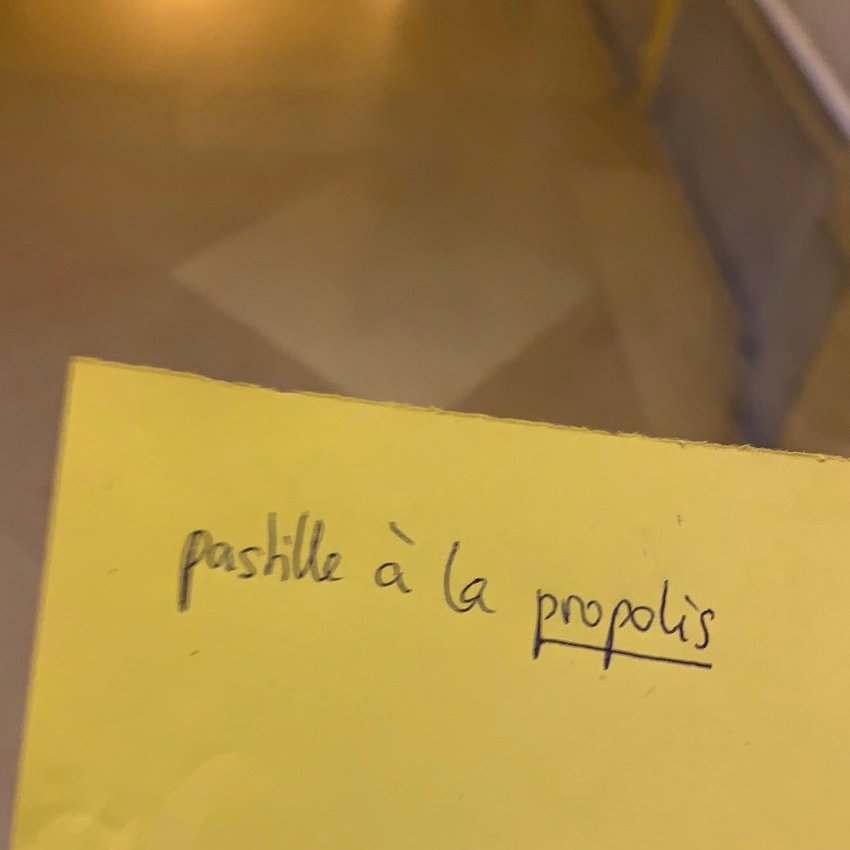 pastille à la propolis